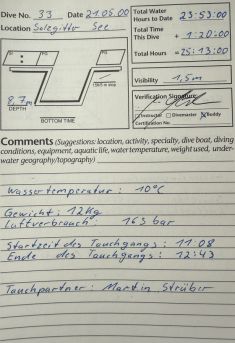 Dive No. 33 Date 21.05.00
Location Salzgitter See
Total Water
Hours to Date 23:53:00
Total Time
This Dive + 1:20:00
Total Hours = 25:13:00
Visibility 1,5m
SI PG PG
8,7m
DEPTH
BOTTOM TIME
Verification Signature
Instructor Divemaster Buddy
Certification No.
Comments (Suggestions: location, activity, specialty, dive boat, diving
conditions, equipment, aquatic life, water temperature, weight used, under-
water geography/topography)
Wassertemperatur: 10°C
Gewicht: 12kg
Luftverbrauch: 165 bar
Startzeit des Tauchgangs: 11:08
Ende des Tauchgangs: 12:43
Tauchpartner: Martin Strübir